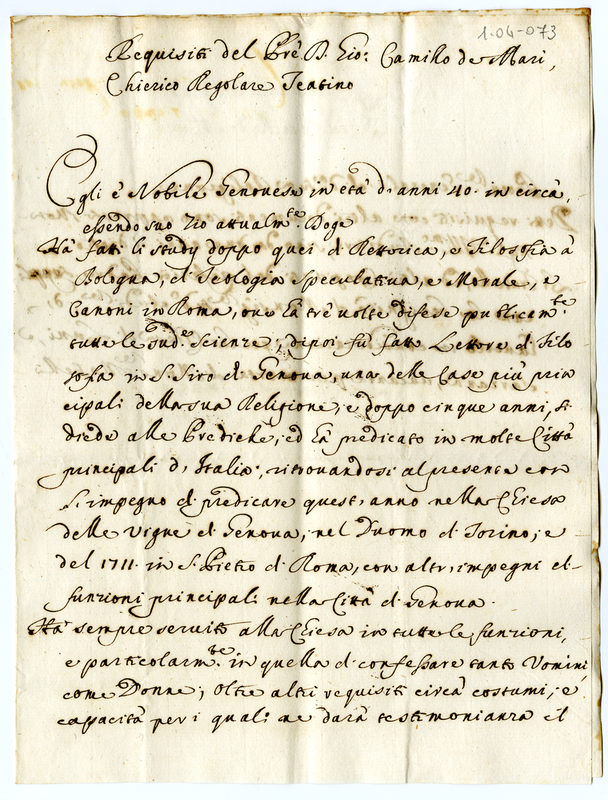 1-04-073
Requisiti del Prē D. Gio: Camillo de Mari,
Chierico Regolare Teatino
Egli è Nobile Genovese in età d'anni 40. in circa,
essendo suo Zio attualm.te Doge
Hà fatti li studij doppo quei di Rettorica, e Filosofia à
Bologna, di Teologia speculativa, e Morale, e
Canoni in Roma, ove hà trè volte difese publicam.te
tutte le sud.e Scienze; dipoi fù fatto Lettore di Filo
sofia in S. Siro di Genova, una delle Case più prin
cipali della sua Religione; e doppo cinque anni, si
diede alle Prediche, ed hà predicato in molte Città
principali d'Italia, ritrovandosi al presente con
l'impegno di predicare quest'anno nella Chiesa
delle Vigne di Genova, nel Duomo di Torino, e
del 1711. in S. Pietro di Roma, con altri impegni di
funzioni principali nella Città di Genova.
Hà sempre servito alla Chiesa in tutte le funzioni,
e particolarm.te in quella di confessare tanto Uomini,
come Donne; oltre altri requisiti circa costumi, e
capacità per i quali ne darà testimonianza il